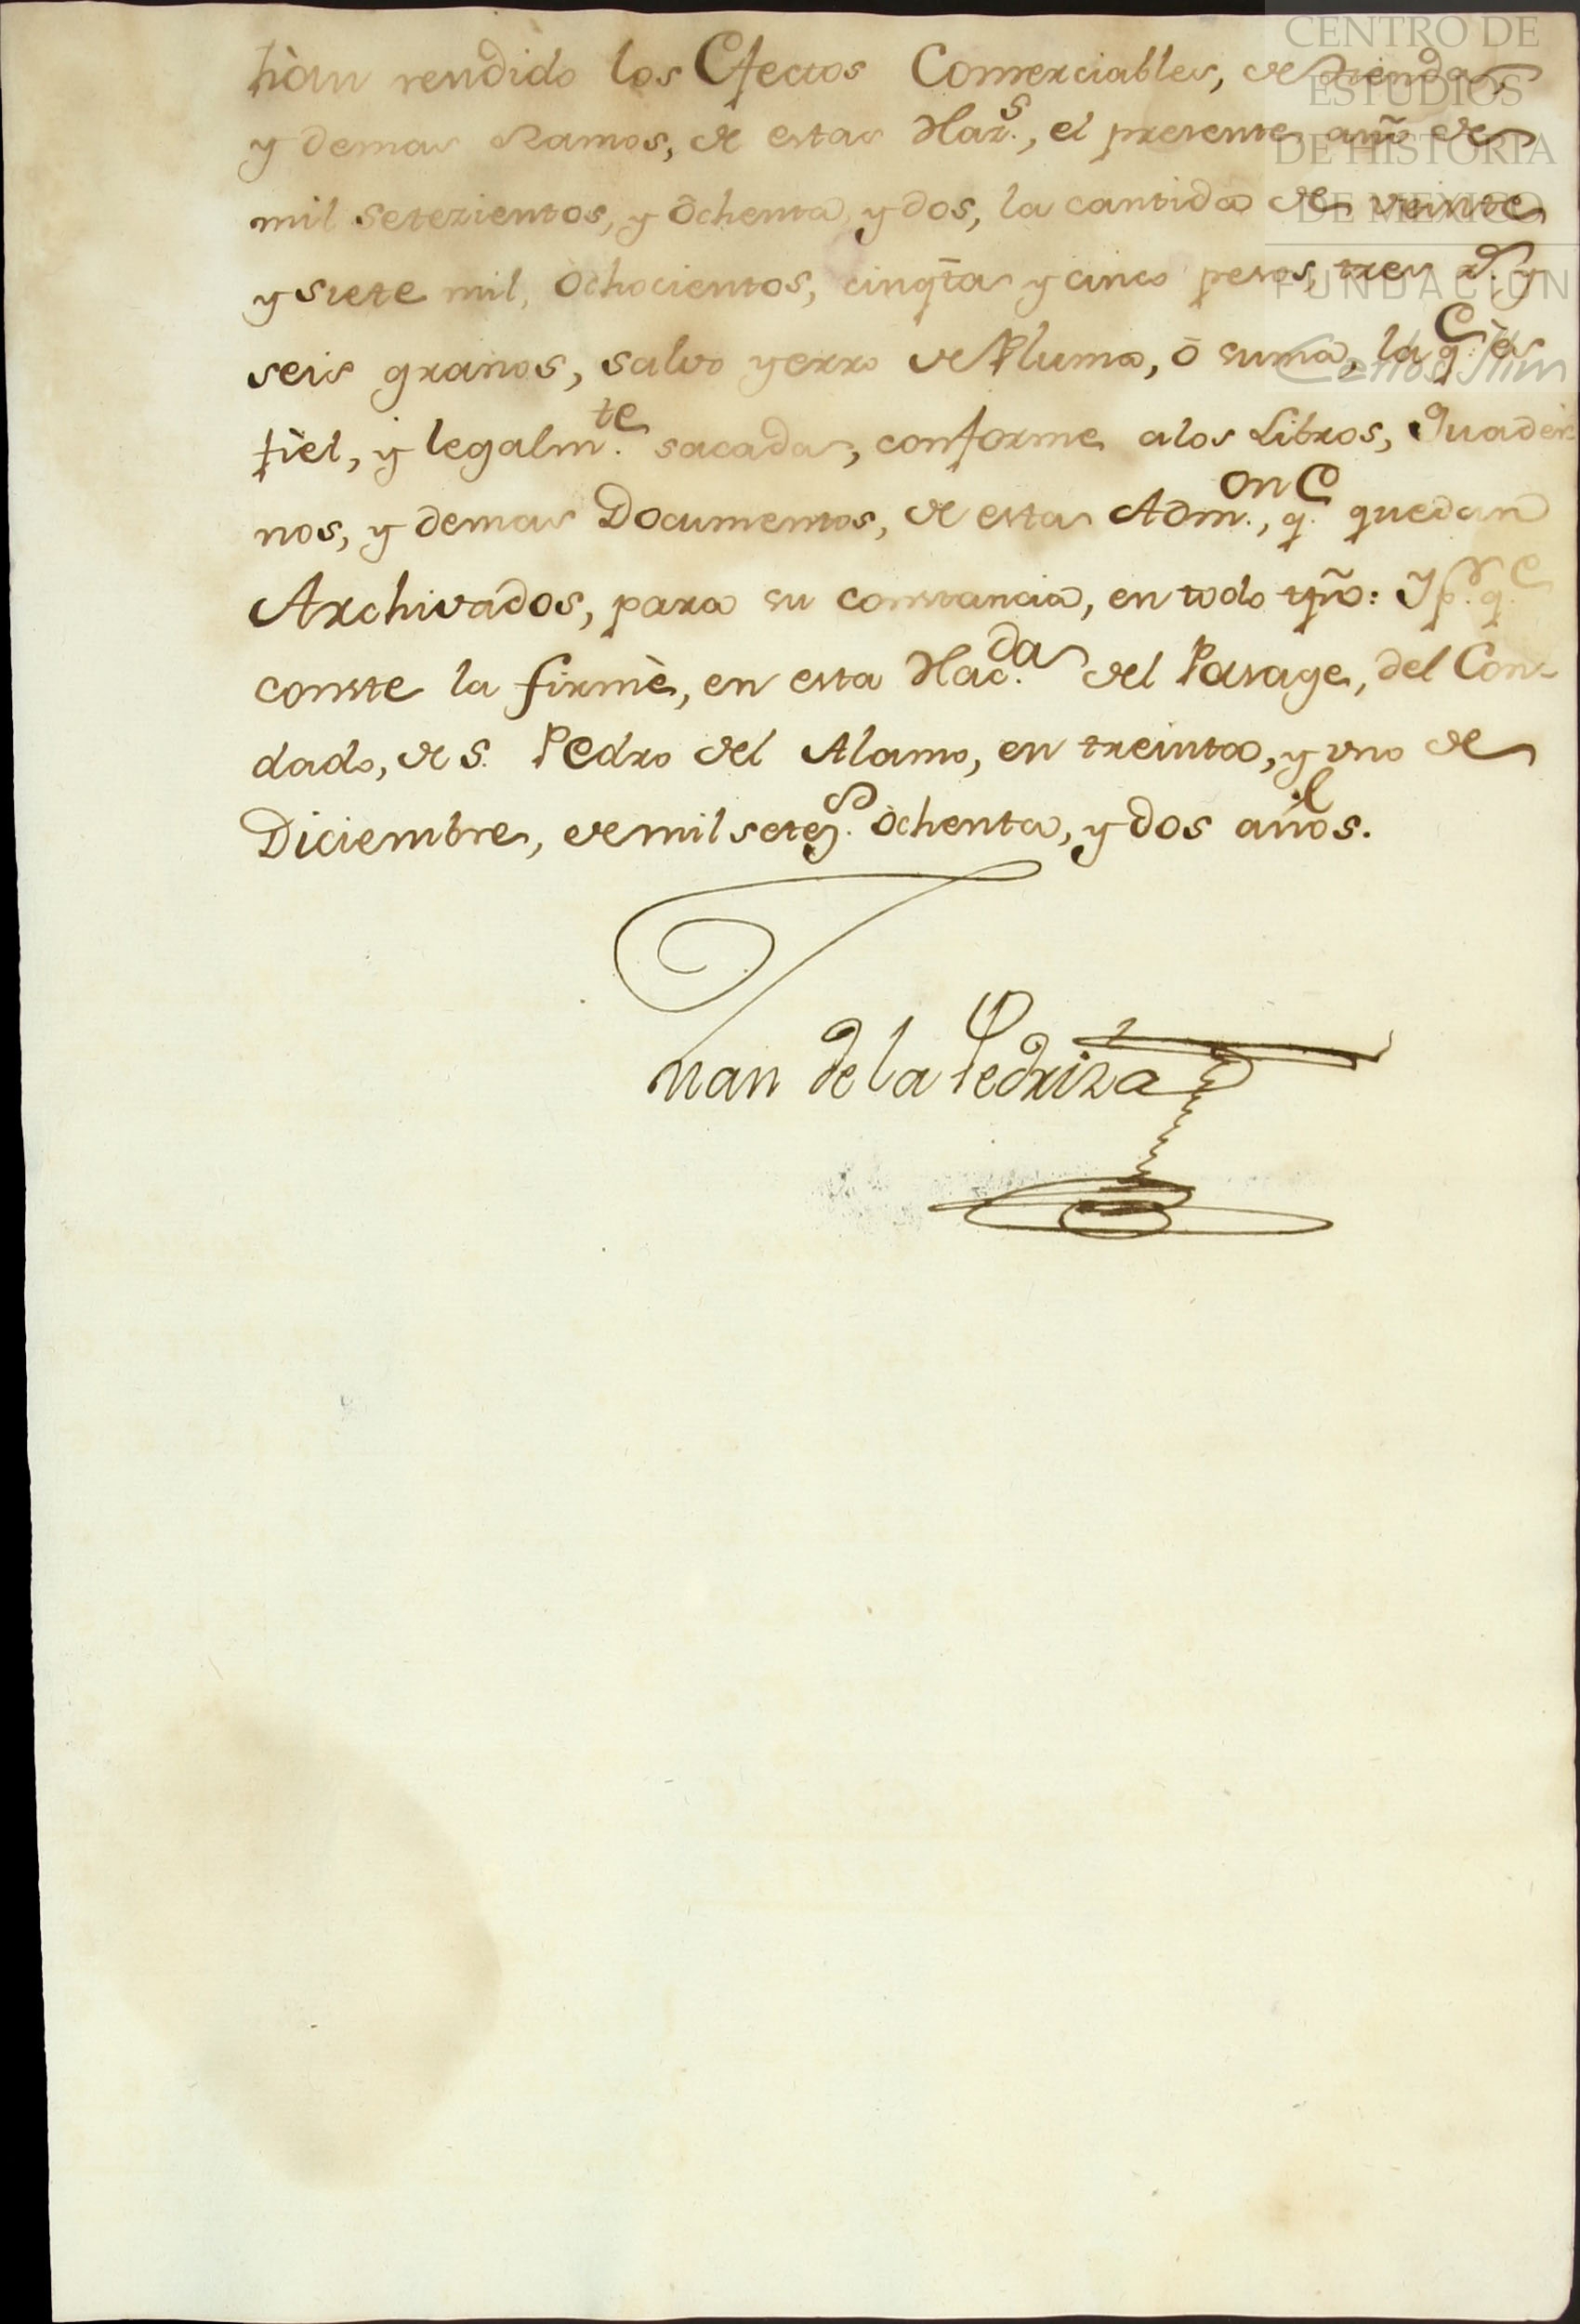 hàn rendido los Efectos Comerciables, de tienda,
y demas Ramos, de estas Haz.s, el presente año de
mil setezientos, y òchenta, y dos, la cantidad de veinte
y siete mil, òchocientos, cinq.ta y cinco pesos, tres r.s y
seis granos, salvo yerro de Pluma, ò suma, la q.e ès
fièl, y legalm.te sacada, conforme alos Libros, Quader
nos, y demas Documentos, de esta Adm.on, q.e quedan
Archivados, para su constancia, en todo tpõ: Y p.r q.e
conste la firmè, en esta Hac.da del Pasage, del Con-
dado, de S. Pedro del Alamo, en treinta, y uno de
Diciembre, de mil setez.s òchenta, y dos años.
Juan de la Pedriza
CENTRO DE
ESTUDIOS
DE HISTORIA
DE MEXICO
FUNDACIÓN
Carlos Slim